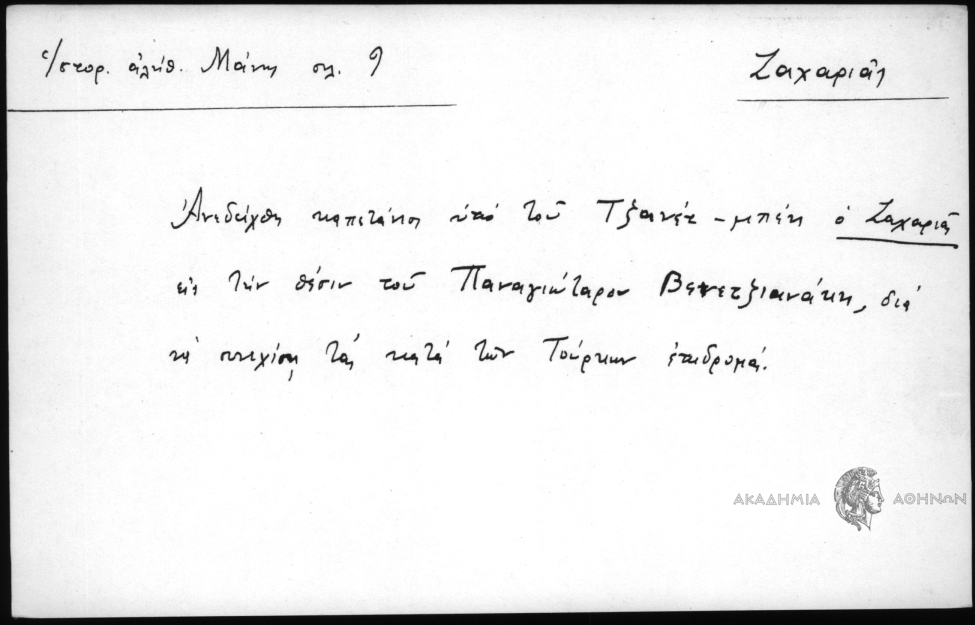 Ἱστορ. ἀλήθ. Μάνης σελ. 9
Ζαχαριᾶς
Ἀνεδείχθη καπετάνιος ὑπό τοῦ Τζανέτ-μπέη ὁ Ζαχαριᾶς
εἰς τήν θέσιν τοῦ Παναγιώταρου Βενετζιανάκη, διά
νά συνεχίσῃ τάς κατά τῶν Τούρκων ἐπιδρομάς.
ΑΚΑΔΗΜΙΑ ΑΘΗΝΩΝ